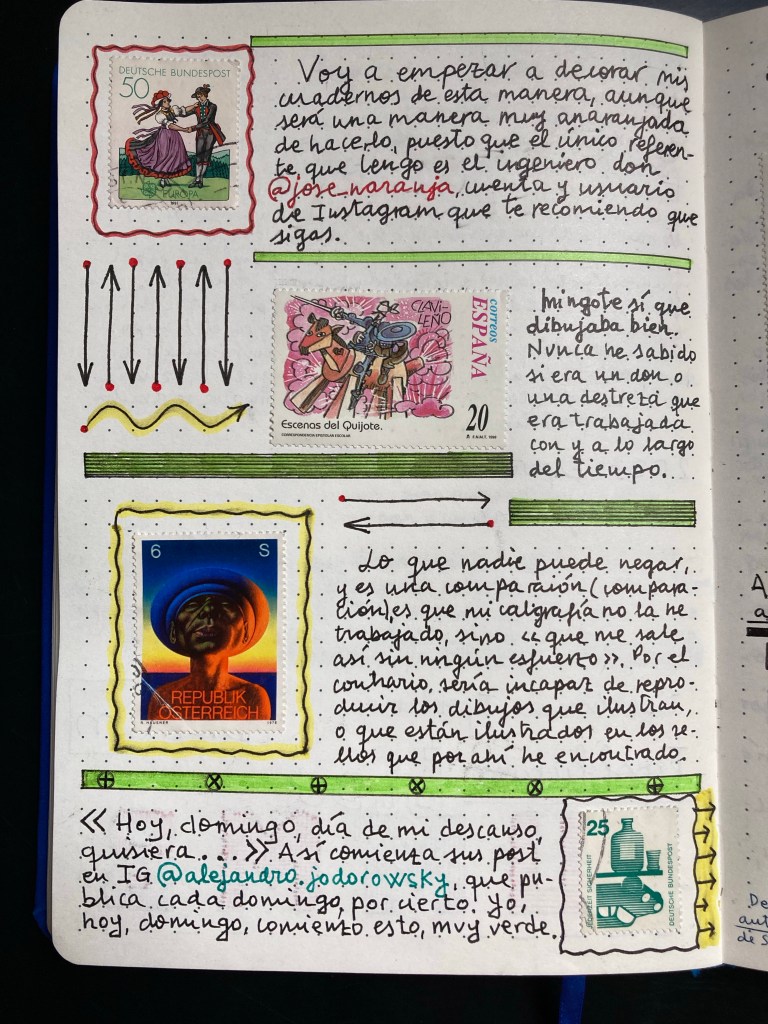 DEUTSCHE BUNDESPOST
50
EUROPA
1981
Voy a empezar a decorar mis
cuadernos de esta manera, aunque
será una manera muy anaranjada
de hacerlo, puesto que el único referen-
te que tengo es el ingeniero don
@jose_naranja, cuenta y usuario
de Instagram que te recomiendo que
sigas.
CLAVI-
LEÑO
CORREOS
ESPAÑA
20
Escenas del Quijote.
CORRESPONDENCIA EPISTOLAR ESCOLAR
Mingote sí que
dibujaba bien.
Nunca he sabido
si era un don o
una destreza que
era trabajada
con y a lo largo
del tiempo.
6 S
REPUBLIK
ÖSTERREICH
Lo que nadie puede negar,
y es una comparación (compara-
ción), es que mi caligrafía no la he
trabajado, sino «que me sale
así sin ningún esfuerzo». Por el
contrario, sería incapaz de repro-
ducir los dibujos que ilustran,
o que están ilustrados en los se-
llos que por ahí he encontrado.
« Hoy, domingo, día de mi descanso,
quisiera... » Así comienza sus post
en IG @alejandro.jodorowsky, que pu-
blica cada domingo, por cierto. Yo,
hoy, domingo, comienzo esto, muy verde.
25
DEUTSCHE BUNDESPOST